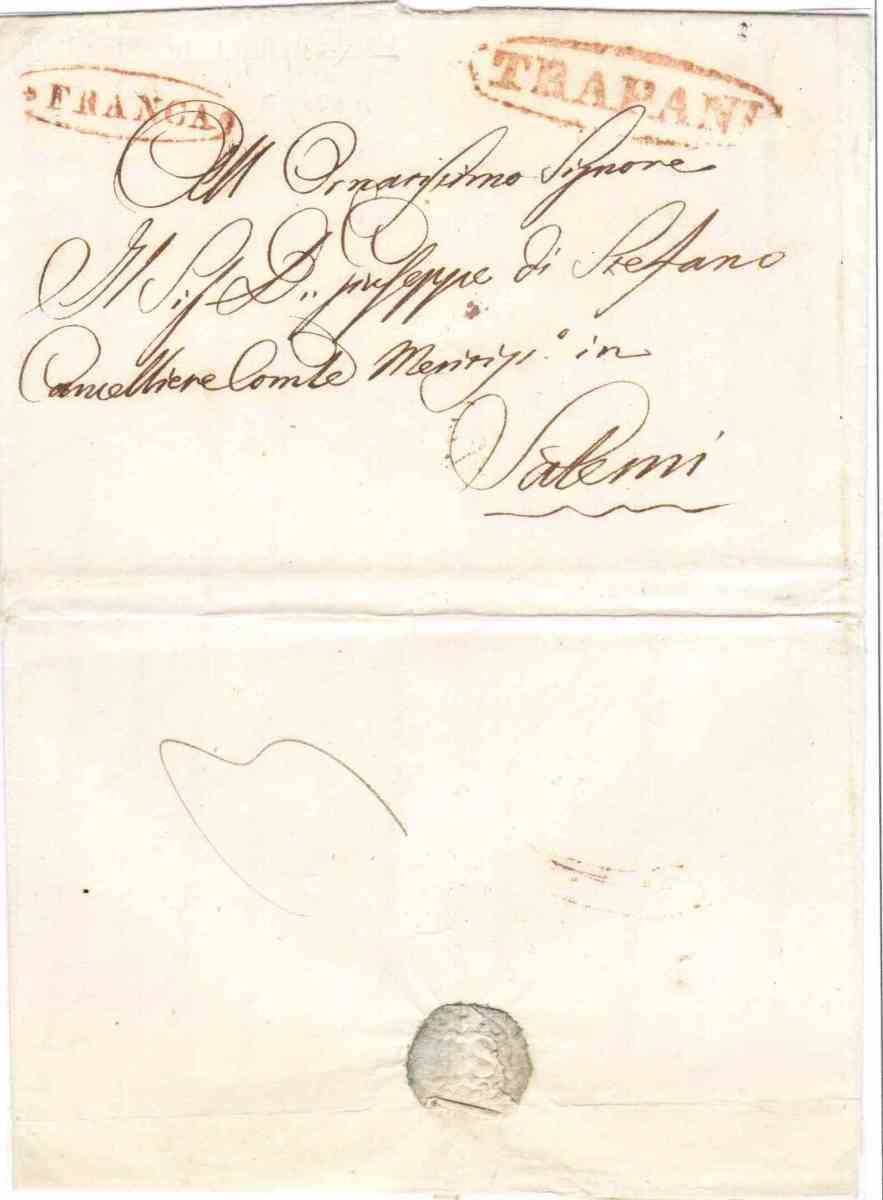 FRANCA
TRAPANI
All Ornatissimo Signore
Il Sig. D.n Giuseppe di Stefano
Cancelliere Com.le in
Salemi